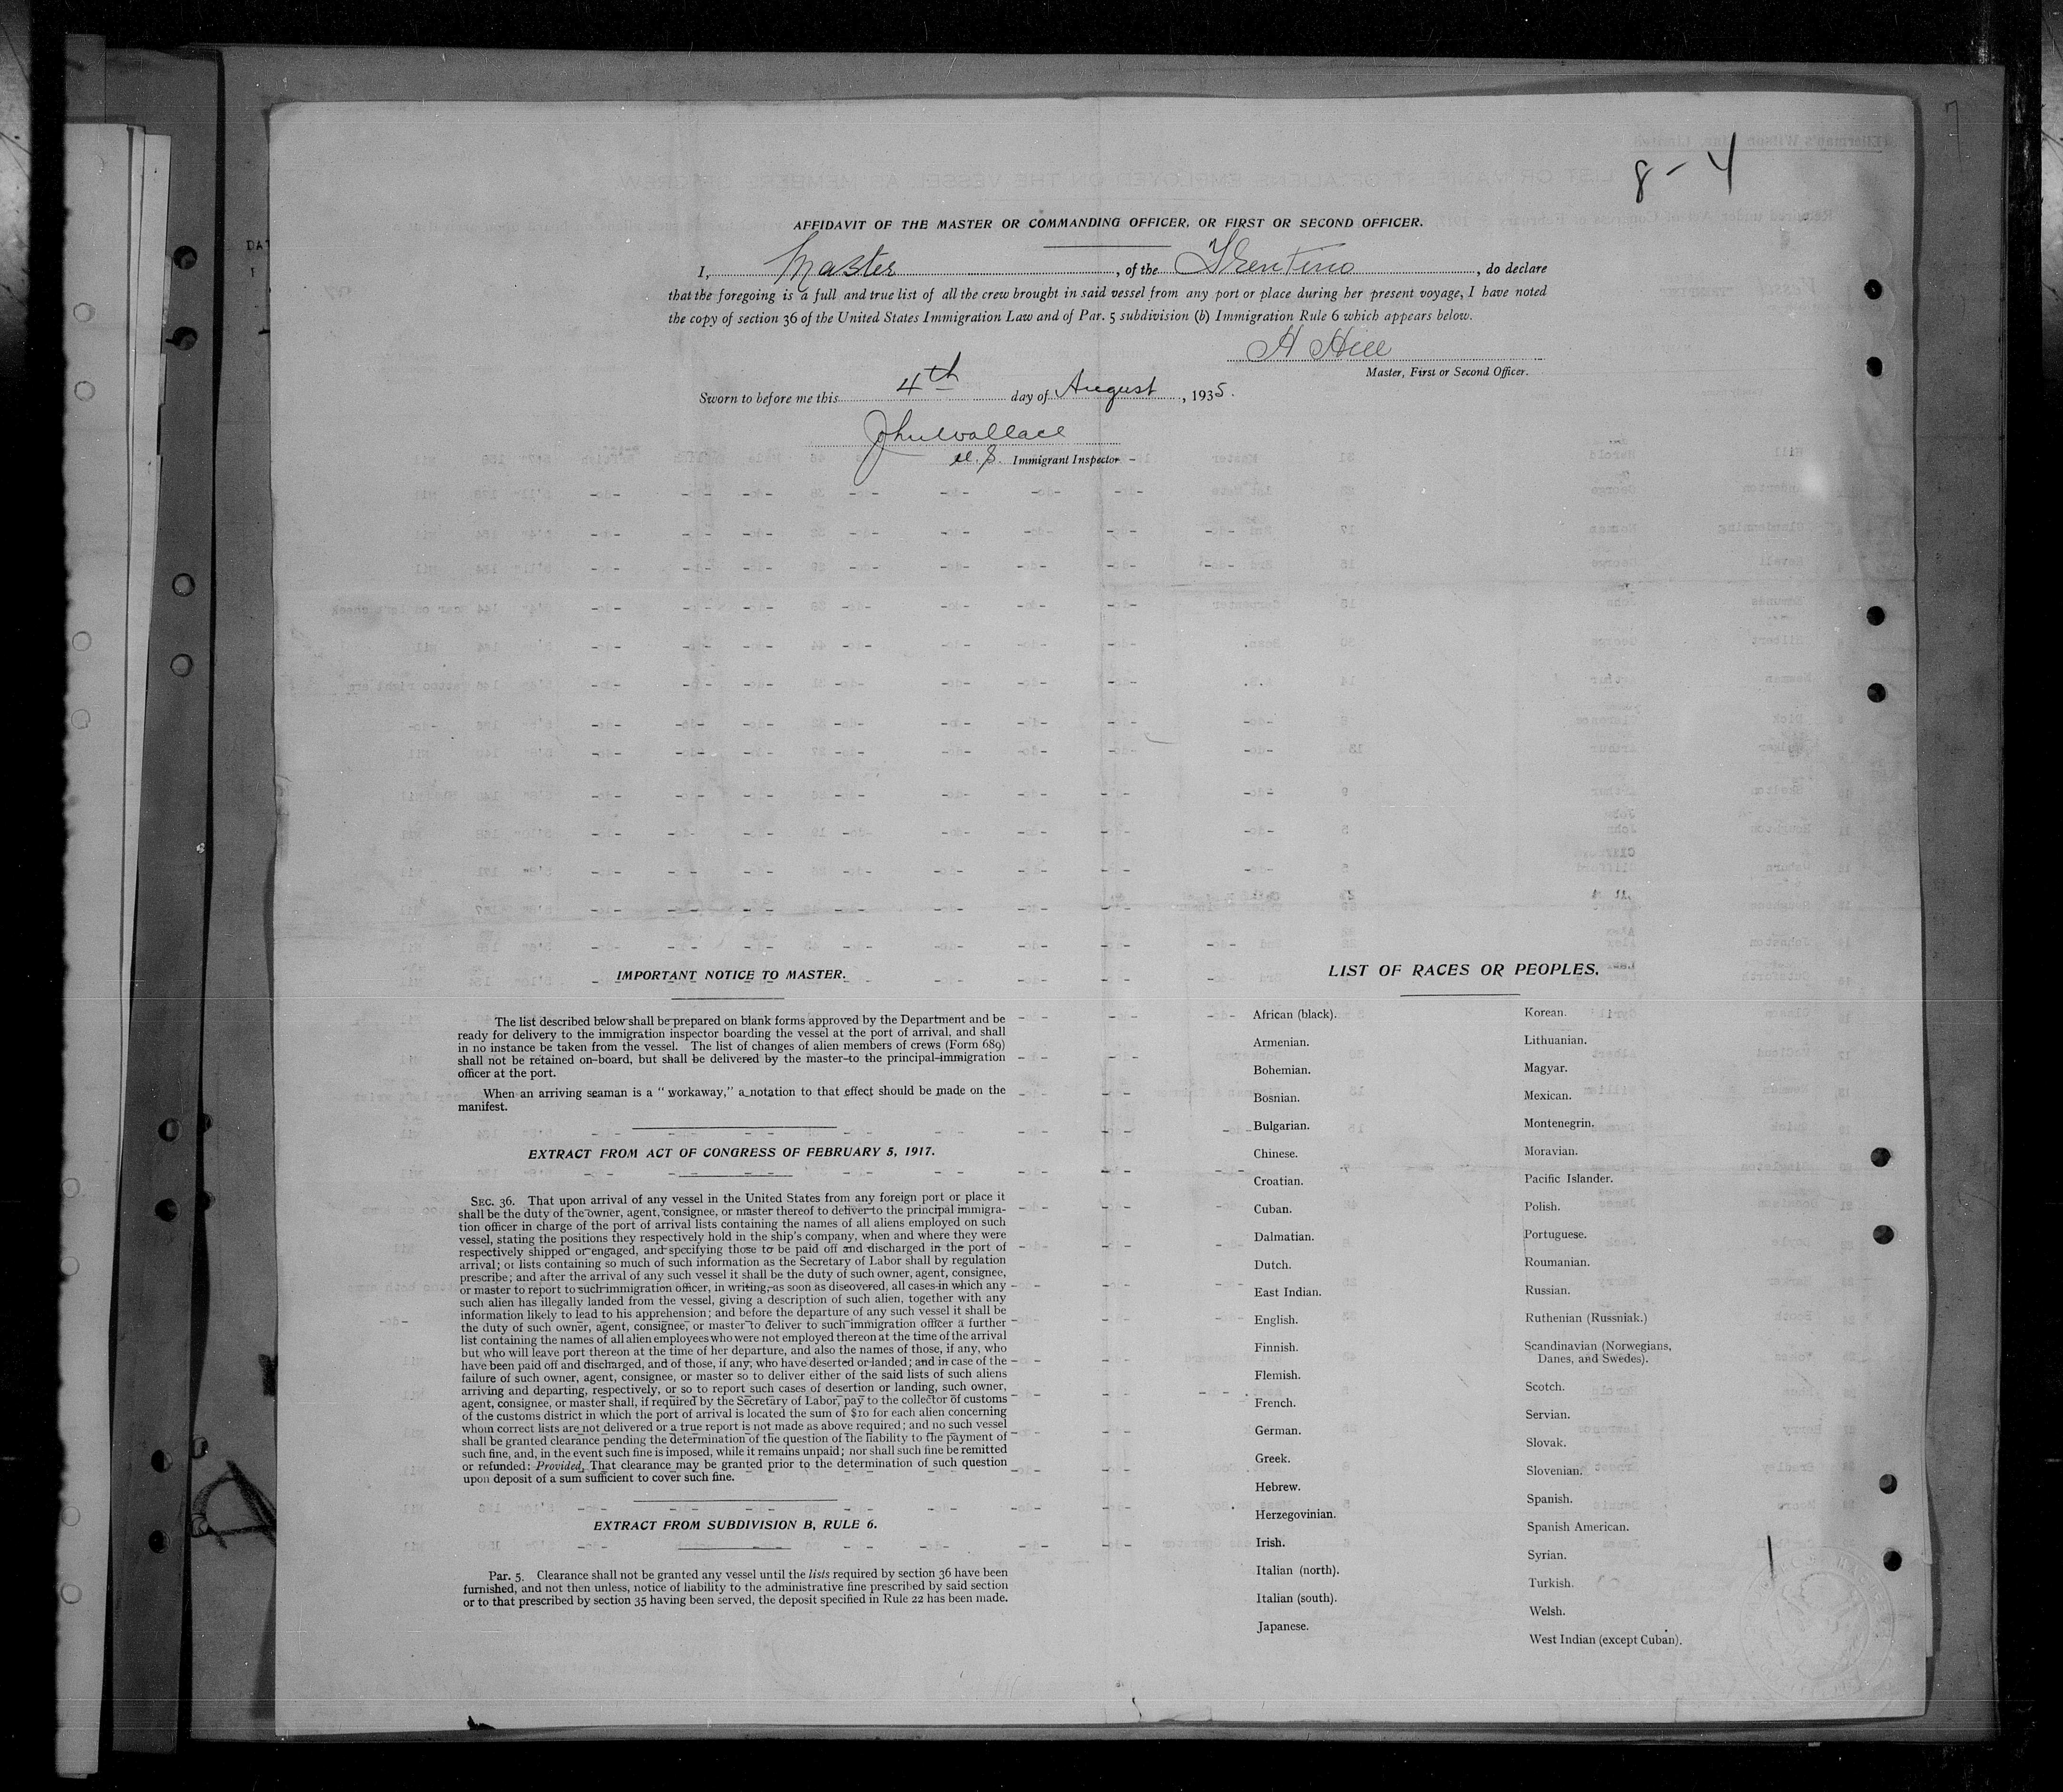 8-4
AFFIDAVIT OF THE MASTER OR COMMANDING OFFICER, OR FIRST OR SECOND OFFICER.
I, Master, of the Trentino, do declare
that the foregoing is a full and true list of all the crew brought in said vessel from any port or place during her present voyage, I have noted
the copy of section 36 of the United States Immigration Law and of Par. 5 subdivision (b) Immigration Rule 6 which appears below.
H Hill
Master, First or Second Officer.
Sworn to before me this 4th day of August, 1935.
John Wallace
U.S. Immigrant Inspector
IMPORTANT NOTICE TO MASTER.
The list described below shall be prepared on blank forms approved by the Department and be
ready for delivery to the immigration inspector boarding the vessel at the port of arrival, and shall
in no instance be taken from the vessel. The list of changes of alien members of crews (Form 689)
shall not be retained on board, but shall be delivered by the master to the principal immigration
officer at the port.
When an arriving seaman is a "workaway," a notation to that effect should be made on the
manifest.
EXTRACT FROM ACT OF CONGRESS OF FEBRUARY 5, 1917.
SEC. 36. That upon arrival of any vessel in the United States from any foreign port or place it
shall be the duty of the owner, agent, consignee, or master thereof to deliver to the principal immigra-
tion officer in charge of the port of arrival lists containing the names of all aliens employed on such
vessel, stating the positions they respectively hold in the ship's company, when and where they were
respectively shipped or engaged, and specifying those to be paid off and discharged in the port of
arrival; or lists containing so much of such information as the Secretary of Labor shall by regulation
prescribe; and after the arrival of any such vessel it shall be the duty of such owner, agent, consignee,
or master to report to such immigration officer, in writing, as soon as discovered, all cases in which any
such alien has illegally landed from the vessel, giving a description of such alien, together with any
information likely to lead to his apprehension; and before the departure of any such vessel it shall be
the duty of such owner, agent, consignee, or master to deliver to such immigration officer a further
list containing the names of all alien employees who were not employed thereon at the time of the arrival
but who will leave port thereon at the time of her departure, and also the names of those, if any, who
have been paid off and discharged, and of those, if any, who have deserted or landed; and in case of the
failure of such owner, agent, consignee, or master so to deliver either of the said lists of such aliens
arriving and departing, respectively, or so to report such cases of desertion or landing, such owner,
agent, consignee, or master shall, if required by the Secretary of Labor, pay to the collector of customs
of the customs district in which the port of arrival is located the sum of $10 for each alien concerning
whom correct lists are not delivered or a true report is not made as above required; and no such vessel
shall be granted clearance pending the determination of the question of the liability to the payment of
such fine, and, in the event such fine is imposed, while it remains unpaid; nor shall such fine be remitted
or refunded: Provided, That clearance may be granted prior to the determination of such question
upon deposit of a sum sufficient to cover such fine.
EXTRACT FROM SUBDIVISION B, RULE 6.
Par. 5. Clearance shall not be granted any vessel until the lists required by section 36 have been
furnished, and not then unless, notice of liability to the administrative fine prescribed by said section
or to that prescribed by section 35 having been served, the deposit specified in Rule 22 has been made.
LIST OF RACES OR PEOPLES.
African (black).
Armenian.
Bohemian.
Bosnian.
Bulgarian.
Chinese.
Croatian.
Cuban.
Dalmatian.
Dutch.
East Indian.
English.
Finnish.
Flemish.
French.
German.
Greek.
Hebrew.
Herzegovinian.
Irish.
Italian (north).
Italian (south).
Japanese.
Korean.
Lithuanian.
Magyar.
Mexican.
Montenegrin.
Moravian.
Pacific Islander.
Polish.
Portuguese.
Roumanian.
Russian.
Ruthenian (Russniak.)
Scandinavian (Norwegians,
Danes, and Swedes).
Scotch.
Servian.
Slovak.
Slovenian.
Spanish.
Spanish American.
Syrian.
Turkish.
Welsh.
West Indian (except Cuban).